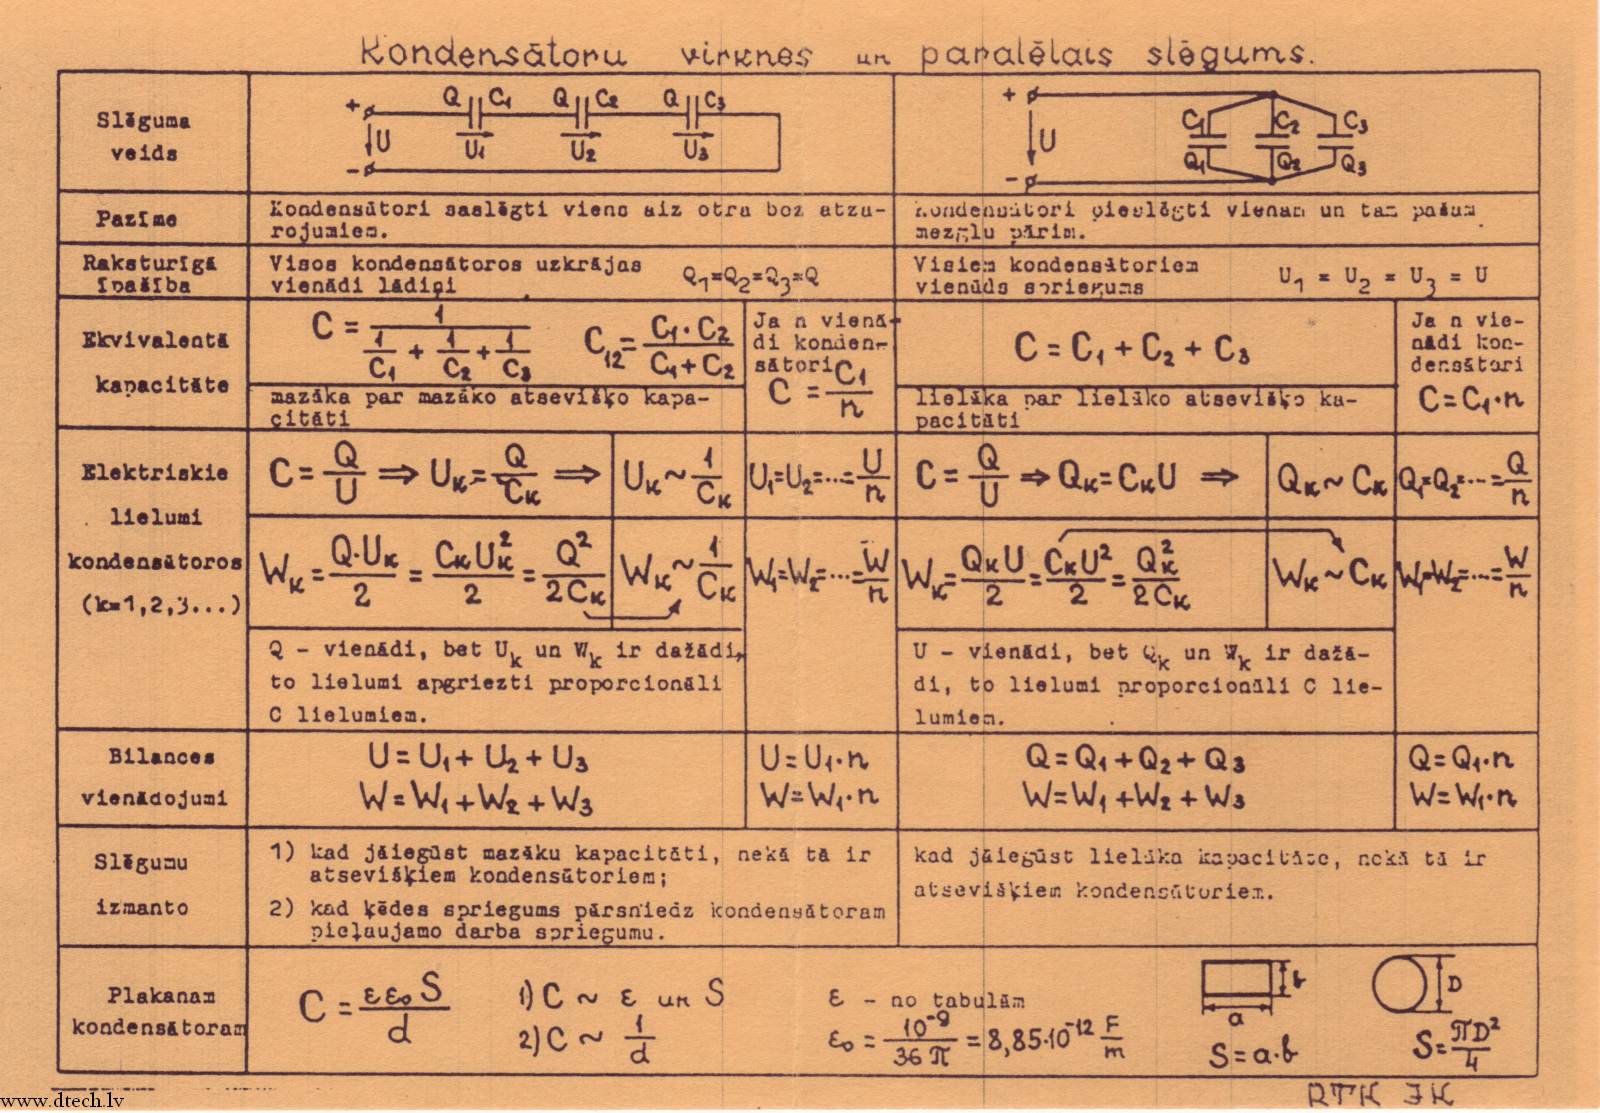 Kondensātoru virknes un paralēlais slēgums.
Slēguma
veids
+ Q C1 Q C2 Q C3
U U1 U2 U3
-
+ C1 C2 C3
U
- Q1 Q2 Q3
Pazīme
Kondensātori saslēgti viens aiz otra bez atza-
rojumiem.
Kondensātori pieslēgti vienam un tam pašam
mezglu pārim.
Raksturīgā
īpašība
Visos kondensātoros uzkrājas
vienādi lādiņi
Q1=Q2=Q3=Q
Visiem kondensātoriem
vienāds spriegums
U1 = U2 = U3 = U
Ekvivalentā
kapacitāte
C = 1/(1/C1 + 1/C2 + 1/C3)
C12 = C1·C2/(C1+C2)
mazāka par mazāko atsevišķo kapa-
citāti
Ja n vienā-
di konden-
sātori
C = C1/n
C = C1 + C2 + C3
lielāka par lielāko atsevišķo ka-
pacitāti
Ja n vie-
nādi kon-
densātori
C = C1·n
Elektriskie
lielumi
kondensātoros
(k=1,2,3...)
C = Q/U ⇒ Uk = Q/Ck ⇒
Uk ~ 1/Ck
U1=U2=...=U/n
C = Q/U ⇒ Qk = CkU ⇒
Qk ~ Ck
Q1=Q2=...=Q/n
Wk = Q·Uk/2 = CkUk²/2 = Q²/2Ck
Wk ~ 1/Ck
W1=W2=...=W/n
Wk = QkU/2 = CkU²/2 = Qk²/2Ck
Wk ~ Ck
W1=W2=...=W/n
Q - vienādi, bet Uk un Wk ir dažādi,
to lielumi apgriezti proporcionāli
C lielumiem.
U - vienādi, bet Qk un Wk ir dažā-
di, to lielumi proporcionāli C lie-
lumiem.
Bilances
vienādojumi
U = U1 + U2 + U3
W = W1 + W2 + W3
U = U1·n
W = W1·n
Q = Q1 + Q2 + Q3
W = W1 + W2 + W3
Q = Q1·n
W = W1·n
Slēgumu
izmanto
1) kad jāiegūst mazāku kapacitāti, nekā tā ir
atsevišķiem kondensātoriem;
2) kad ķēdes spriegums pārsniedz kondensātoram
pieļaujamo darba spriegumu.
kad jāiegūst lielāka kapacitāte, nekā tā ir
atsevišķiem kondensātoriem.
Plakanam
kondensātoram
C = εε₀S/d
1) C ~ ε un S
2) C ~ 1/d
ε - no tabulām
ε₀ = 10⁻⁹/36π = 8,85·10⁻¹² F/m
b
a
S = a·b
D
S = πD²/4
RTK JK
www.dtech.lv